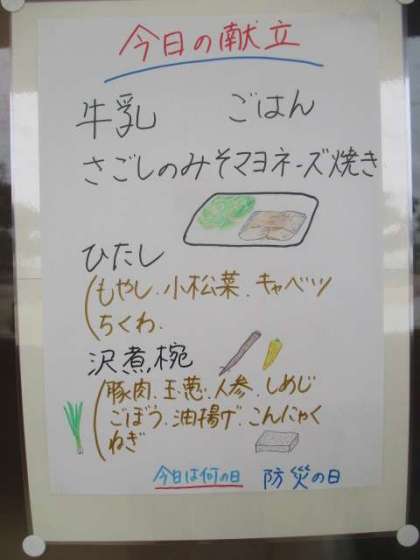 今日の献立
牛乳　ごはん
さごしのみそマヨネーズ焼き
ひたし
もやし.小松菜.キャベツ
ちくわ.
沢煮椀
豚肉.玉葱.人参.しめじ
ごぼう.油揚げ.こんにゃく
ねぎ
今日は何の日　防災の日